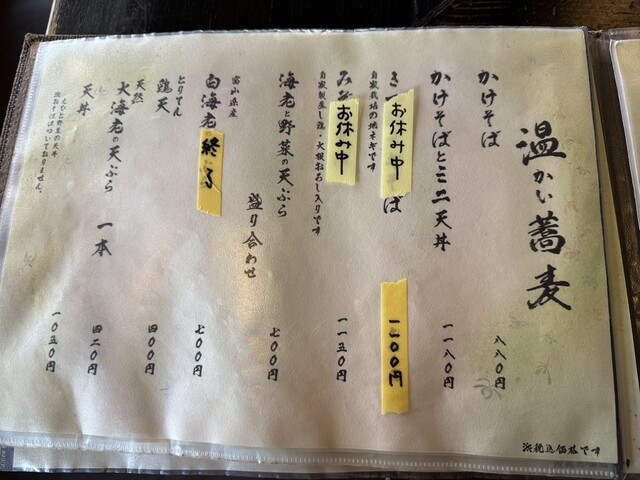 温かい蕎麦
かけそば 八八〇円
かけそばとミニ天丼 一一八〇円
お休み中 ば 一二〇〇円
自家栽培の地ネギです
み お休み中 一一五〇円
自家製蒸し鶏・大根おろし入りです
海老と野菜の天ぷら 盛り合わせ 七〇〇円
富山県産
白海老 終了 七〇〇円
とりてん
鶏天 四〇〇円
天然
大海老の天ぷら 一本 四二〇円
天丼 一〇五〇円
えびと野菜の天丼
おそばはついておりません。
税込価格です